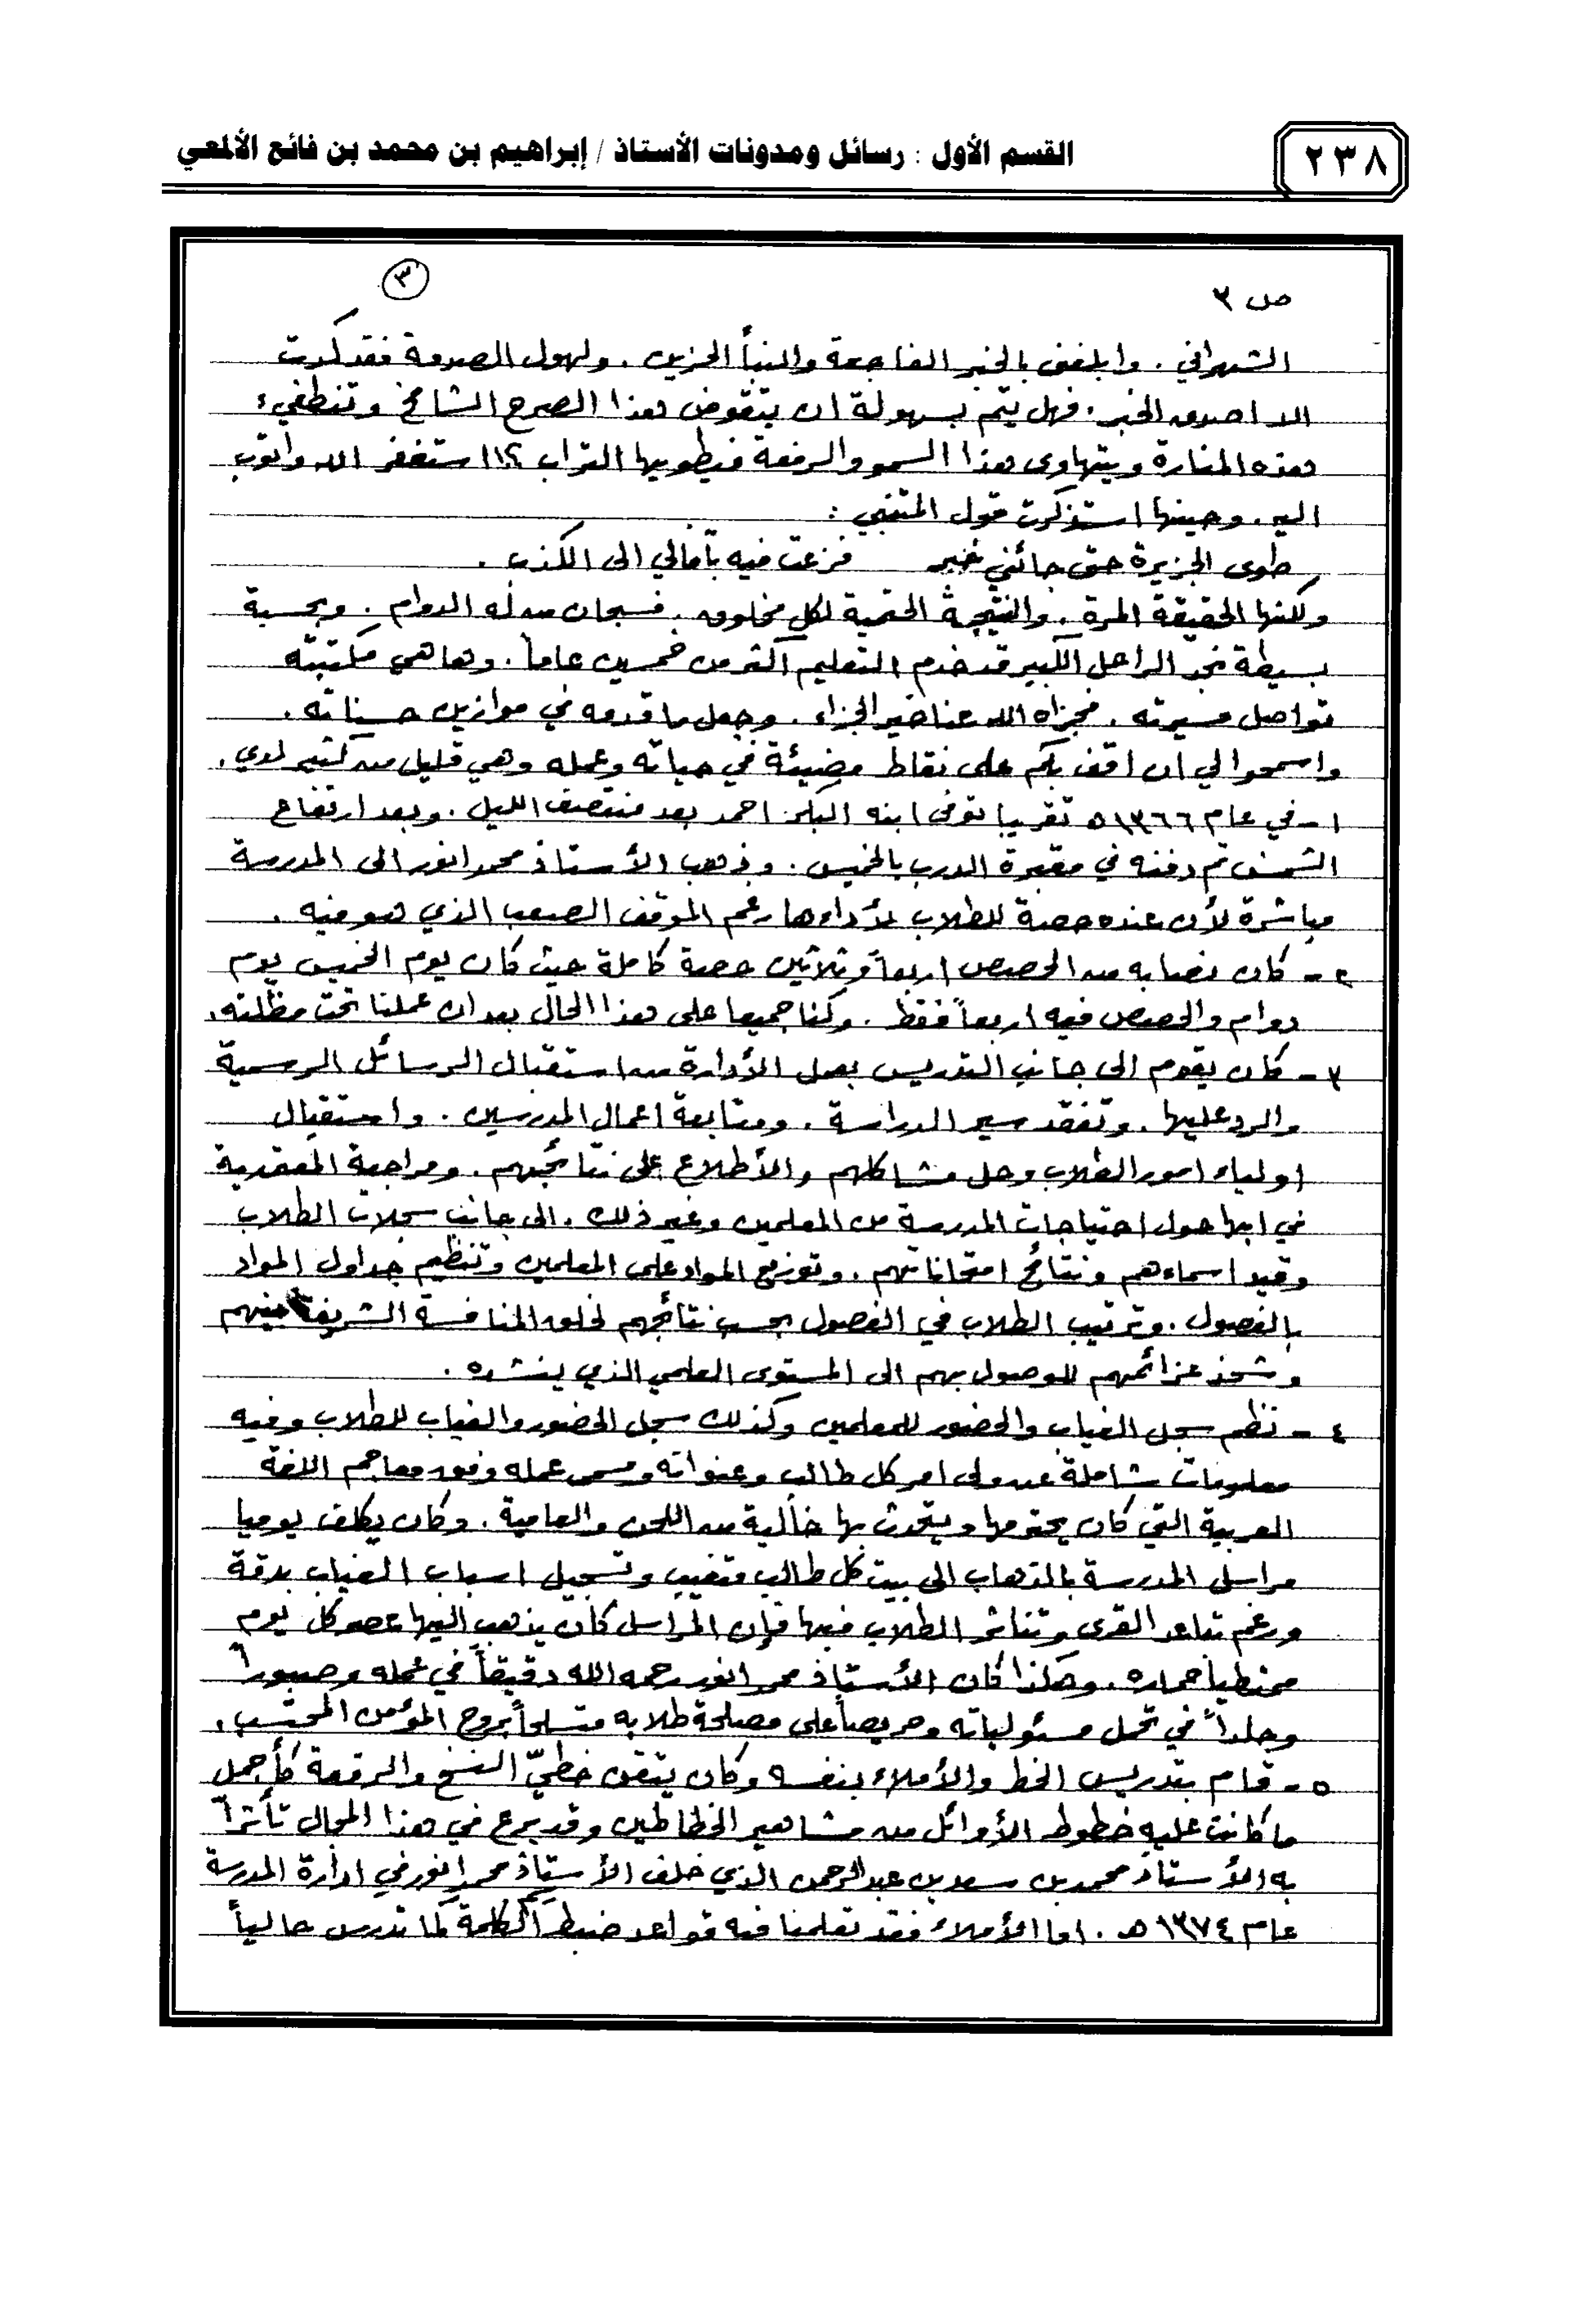 ٢٣٨
القسم الأول : رسائل ومدونات الأستاذ / إبراهيم بن محمد بن فائع الألمعي
ص ٣
٣
الشهراني . وابلغني بالخبر الفاجعة والنبأ الحزين . ولهول الصدمة فقد كدت
الا اصدق الخبر . فهل يتم بسهولة ان يتقوض هذا الصرح الشامخ وتنطفيء
هذه المنارة ويتهاوى هذا السمو والرفعة فيطويها التراب ؟! استغفر الله واتوب
اليه . وحينها استذكرت قول المتنبي :
طوى الجزيرة حتى جائني خبر فزعت فيه بآمالي الى الكذب .
ولكنها الحقيقة المرة . والنتيجة الحتمية لكل مخلوق . فسبحان من له الدوام . وبحسبة
بسيطة نجد الراحل الكبير قد خدم التعليم اكثر من خمسين عاماً . وها هي مكتبته
تواصل مسيرته . فجزاه الله عنا خير الجزاء . وجعل ما قدمه في موازين حسناته .
واسمحوا لي ان اقف بكم على نقاط مضيئة في حياته وعمله وهي قليل من كثير لدي .
١ - في عام ١٣٦٦ه تقريبا توفى ابنه البكر احمد بعد منتصف الليل . وبعد ارتفاع
الشمس تم دفنه في مقبرة الدرب بالخميس . وذهب الأستاذ محمد انور الى المدرسة
مباشرة لأن عنده حصة للطلاب لأداءها رغم الموقف الصعب الذي هو فيه .
٢ - كان نصابه من الحصص اربعاً وثلاثين حصة كاملة حيث كان يوم الخميس يوم
دوام والحصص فيه اربعاً فقط . وكنا جميعا على هذا الحال بعد ان عملنا تحت مظلته .
٣ - كان يقوم الى جانب التدريس بعمل الأدارة من استقبال الرسائل الرسمية
والرد عليها . وتفقد سير الدراسة . ومتابعة اعمال المدرسين . واستقبال
اولياء امور الطلاب وحل مشاكلهم والأطلاع على نتائجهم . ومراجعة المعتمدية
في ابها حول احتياجات المدرسة من المعلمين وغير ذلك . الى جانب سجلات الطلاب
وقيد اسماءهم ونتائج امتحاناتهم . وتوزيع المواد على المعلمين وتنظيم جداول المواد
بالفصول . وترتيب الطلاب في الفصول بحسب نتائجهم لخلق المنافسة الشريفة بينهم
وشحذ عزائمهم للوصول بهم الى المستوى العلمي الذي ينشده .
٤ - نظم سجل الغياب والحضور للمعلمين وكذلك سجل الحضور والغياب للطلاب وفيه
معلومات شاملة عن ولي امر كل طالب وعنوانه ومسمى عمله وفق معاجم اللغة
العربية التي كان يحترمها ويتحدث بها خالية من اللحن والعامية . وكان يكلف يوميا
مراسل المدرسة بالذهاب الى بيت كل طالب متغيب وتسجيل اسباب الغياب بدقة
ورغم تباعد القرى وتناثر الطلاب فيها فإن المراسل كان يذهب اليها عصر كل يوم
ممتطيا حماره . وهكذا كان الأستاذ محمد انور رحمه الله دقيقاً في عمله وصبوراً
وجلداً في تحمل مسئولياته وحريصاً على مصلحة طلابه متسلحاً بروح المؤمن المحتسب .
٥ - قام بتدريس الخط والأملاء بنفسه وكان يتقن خطيّ النسخ والرقعة كأجمل
ما كانت عليه خطوط الأوائل من مشاهير الخطاطين وقد برع في هذا المجال تأثراً
به الأستاذ محمد بن سعد بن عبدالرحمن الذي خلف الأستاذ محمد انور في ادارة المدرسة
عام ١٣٧٤ هـ . اما الأملاء فقد تعلمنا فيه قواعد ضبط الكلمة كما تدرس حالياً